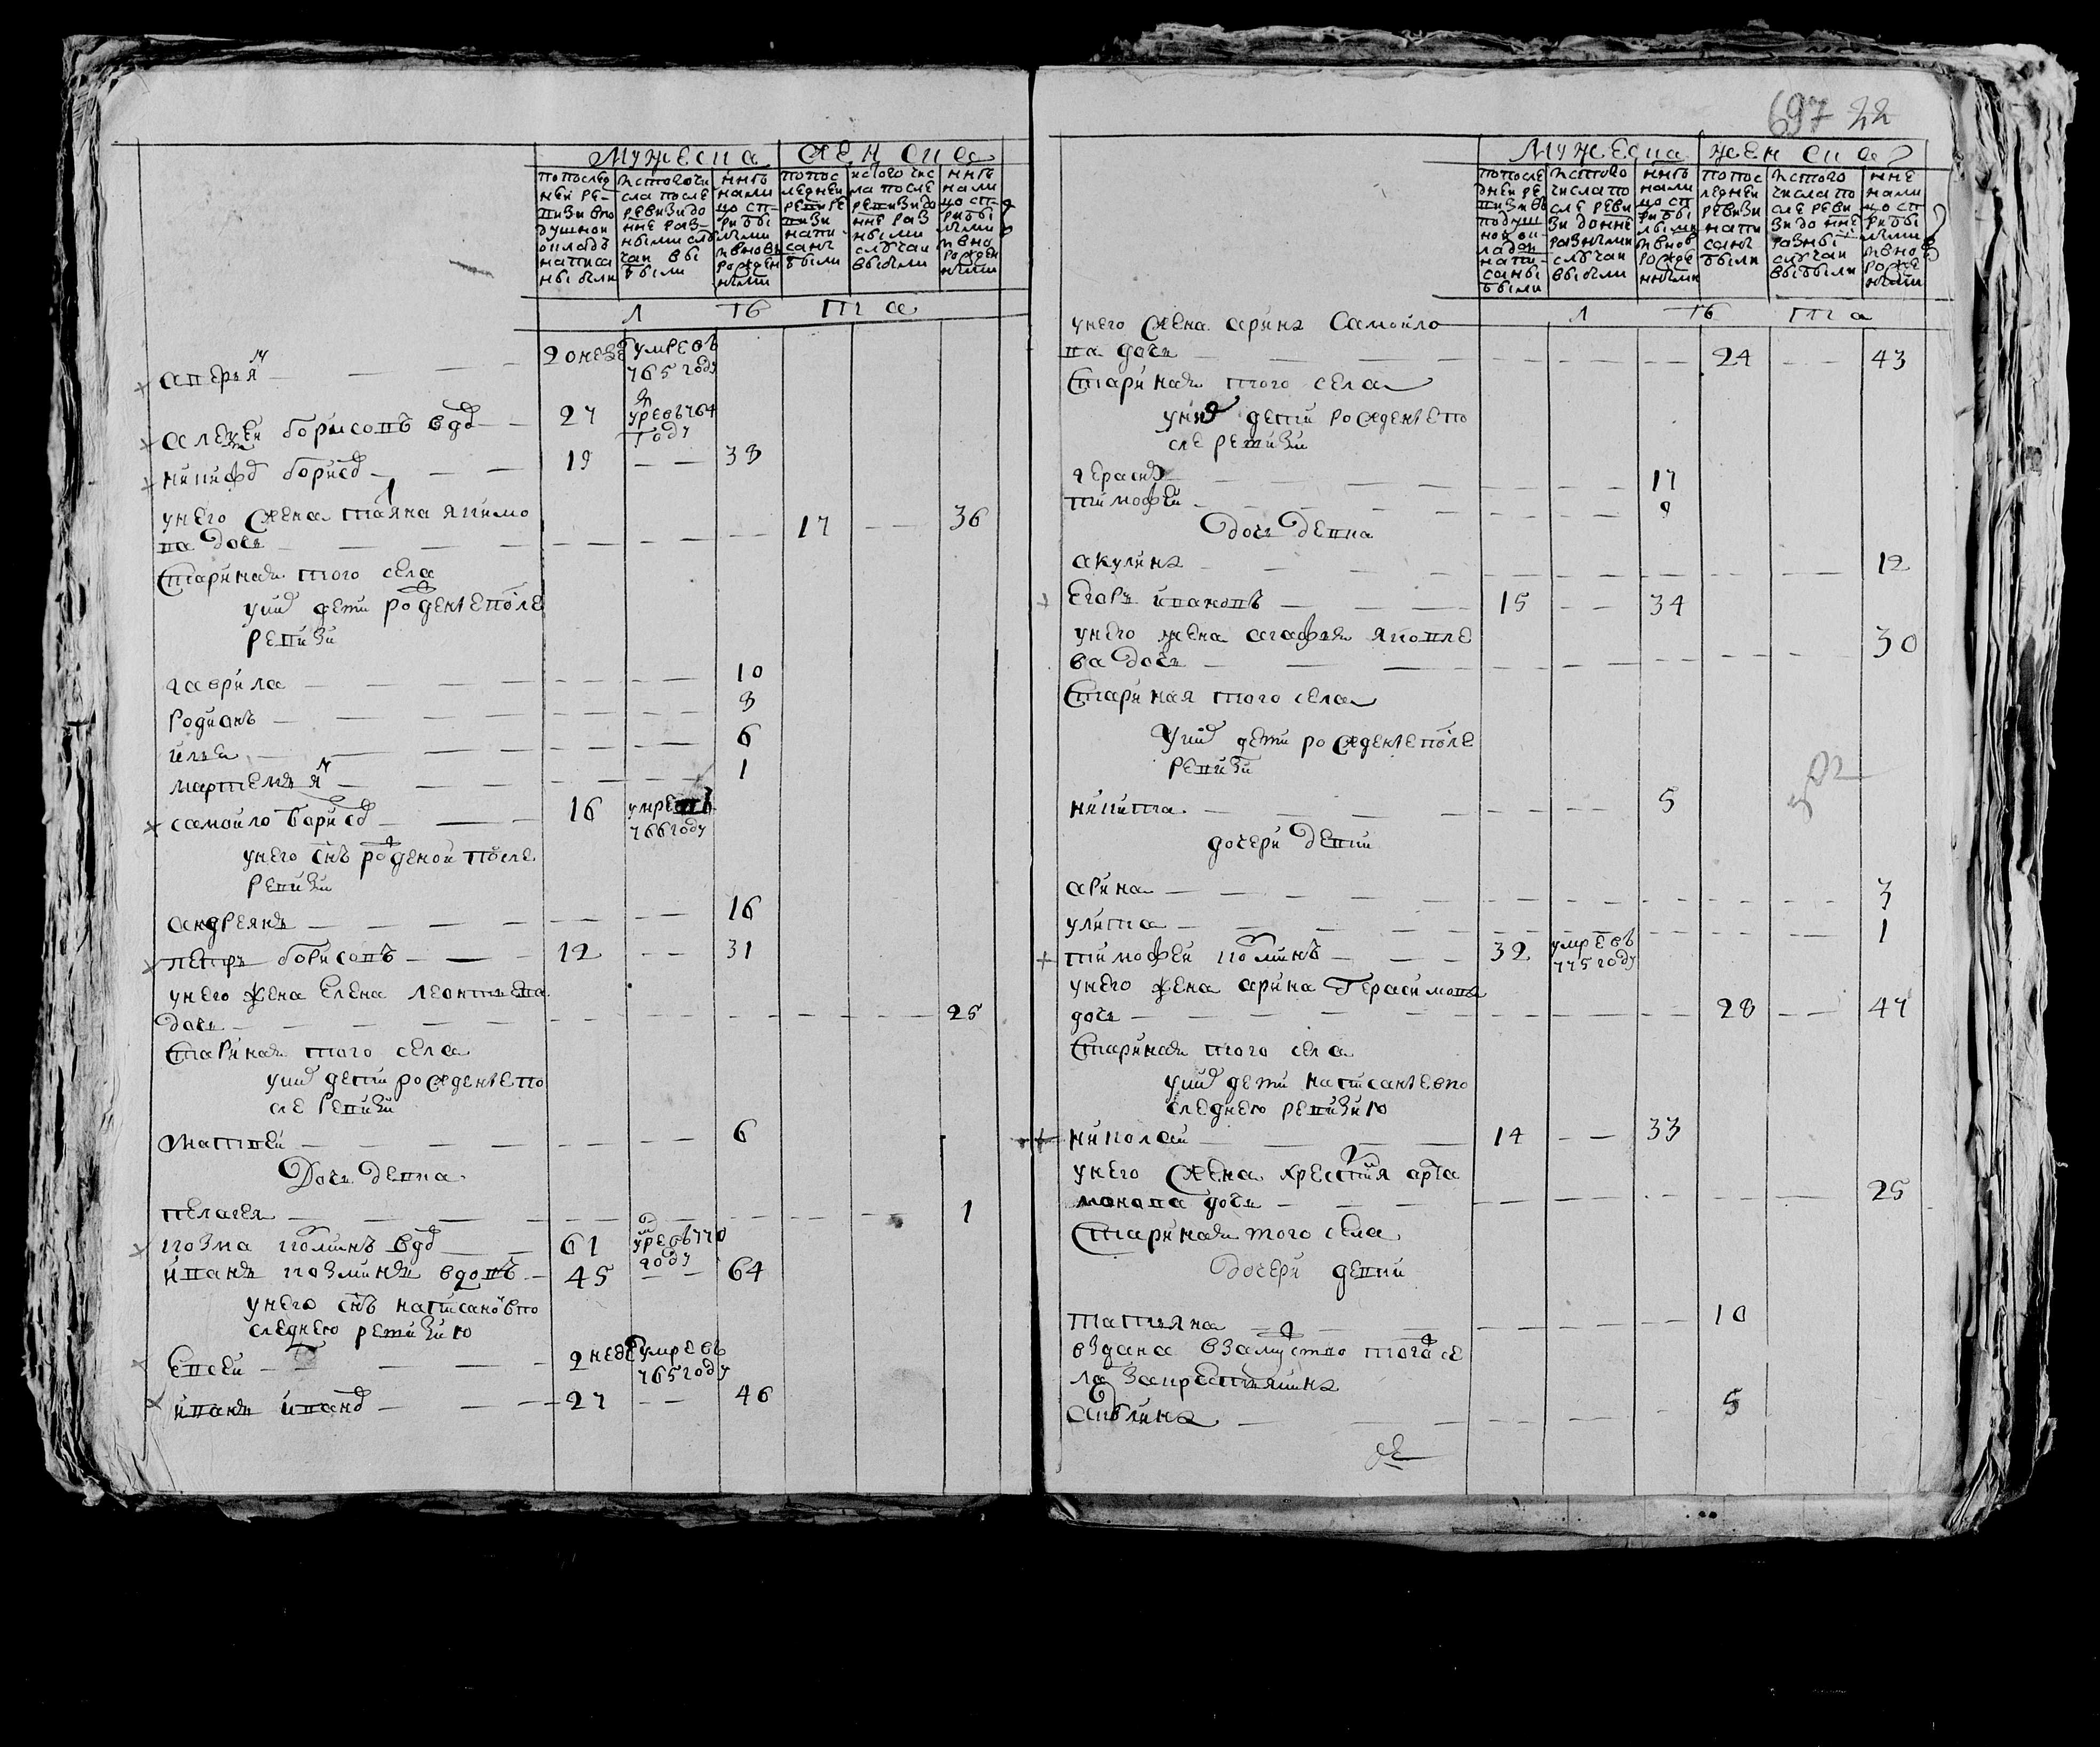 Мужеска женска
по послед
ней ре-
визи в по
душной
окладъ
написа
ны были
ис того чи
сла после
ревизи до
нне раз-
ными слу
чаи вы
были
ннъ
нали
цо с п-
рибы
лыми
и вновь
рожден
ными
по пос
ледней
ревизи
напи-
саны
были
ис того чис
ла после
ревизи до
нне раз
ными
случаи
выбыли
ннъ
нали
цо сп-
рибы
лыми
и вно
рожден
ными
л ѣ т а
аверья м
2 недѣ умре въ
765 году
алексеи борисовъ вдо 27 умре въ 764
году
никифо борисо 19 — — 38
у него жена таяна якимо
ва дочь 17 — — 36
старинная того села
у ни дети рожденые после
ревизи
гаврила 10
родионъ 8
илья 6
мартемья н 1
самоило борисо 16 умре въ
766 году
у него снъ рожденои после
ревизи
андреянъ 16
петръ борисовъ 12 — — 31
у него жена елена леонтьева
дочь 25
старинная того села
у ни дети рожденые по
сле ревизи
матвеи 6
дочь девка
пелагея 1
козма коминъ вдо 61 умре въ 770
году
иванъ козминъ вдовъ 45 — — 64
у него снъ написано в по
следнею ревизию
евсеи 2 недѣ умре въ
765 году
иванъ ивано 27 — — 46
697 22
Мужеска женска
по после
дней ре
визи въ
подуш
ной ок-
ладъ
напи-
саны
были
ис того
числа по
сле реви
зи до нне
разными
случаи
выбыли
ннъ
нали
цо сп
рибы
лыми
и внов
рожде
нными
по пос
ледней
ревизи
напи
саны
были
ис того
числа по
сле реви
зи до нне
разны
случаи
выбыли
нне
нали
цо сп
рибы
лыми
и вно
рожде
ными
л ѣ т а
у него жена арина самоило
ва дочь 24 — — 43
старинная того села
у них дети рожденые по
сле ревизи
герасим 17
тимофеи 9
дочь девка
акулина 12
егоръ ивановъ 15 — — 34
у него жена агафья яковле
ва дочь 30
старинная того села
у них дети рожденые после
ревизи
никита 5
дочери девки
арина 3
улита 1
тимофеи коминъ 32 умре въ
775 году
у него жена арина герасимова
дочь 28 — — 47
старинная того села
у них дети написаные в по
следнею ревизию
николаи 14 — — 33
у него жена крестья арта
монова дочь 25
старинная того села
дочери девки
татьяна 10
вздана взамуство того се
ла за крестьянина
авлина 5